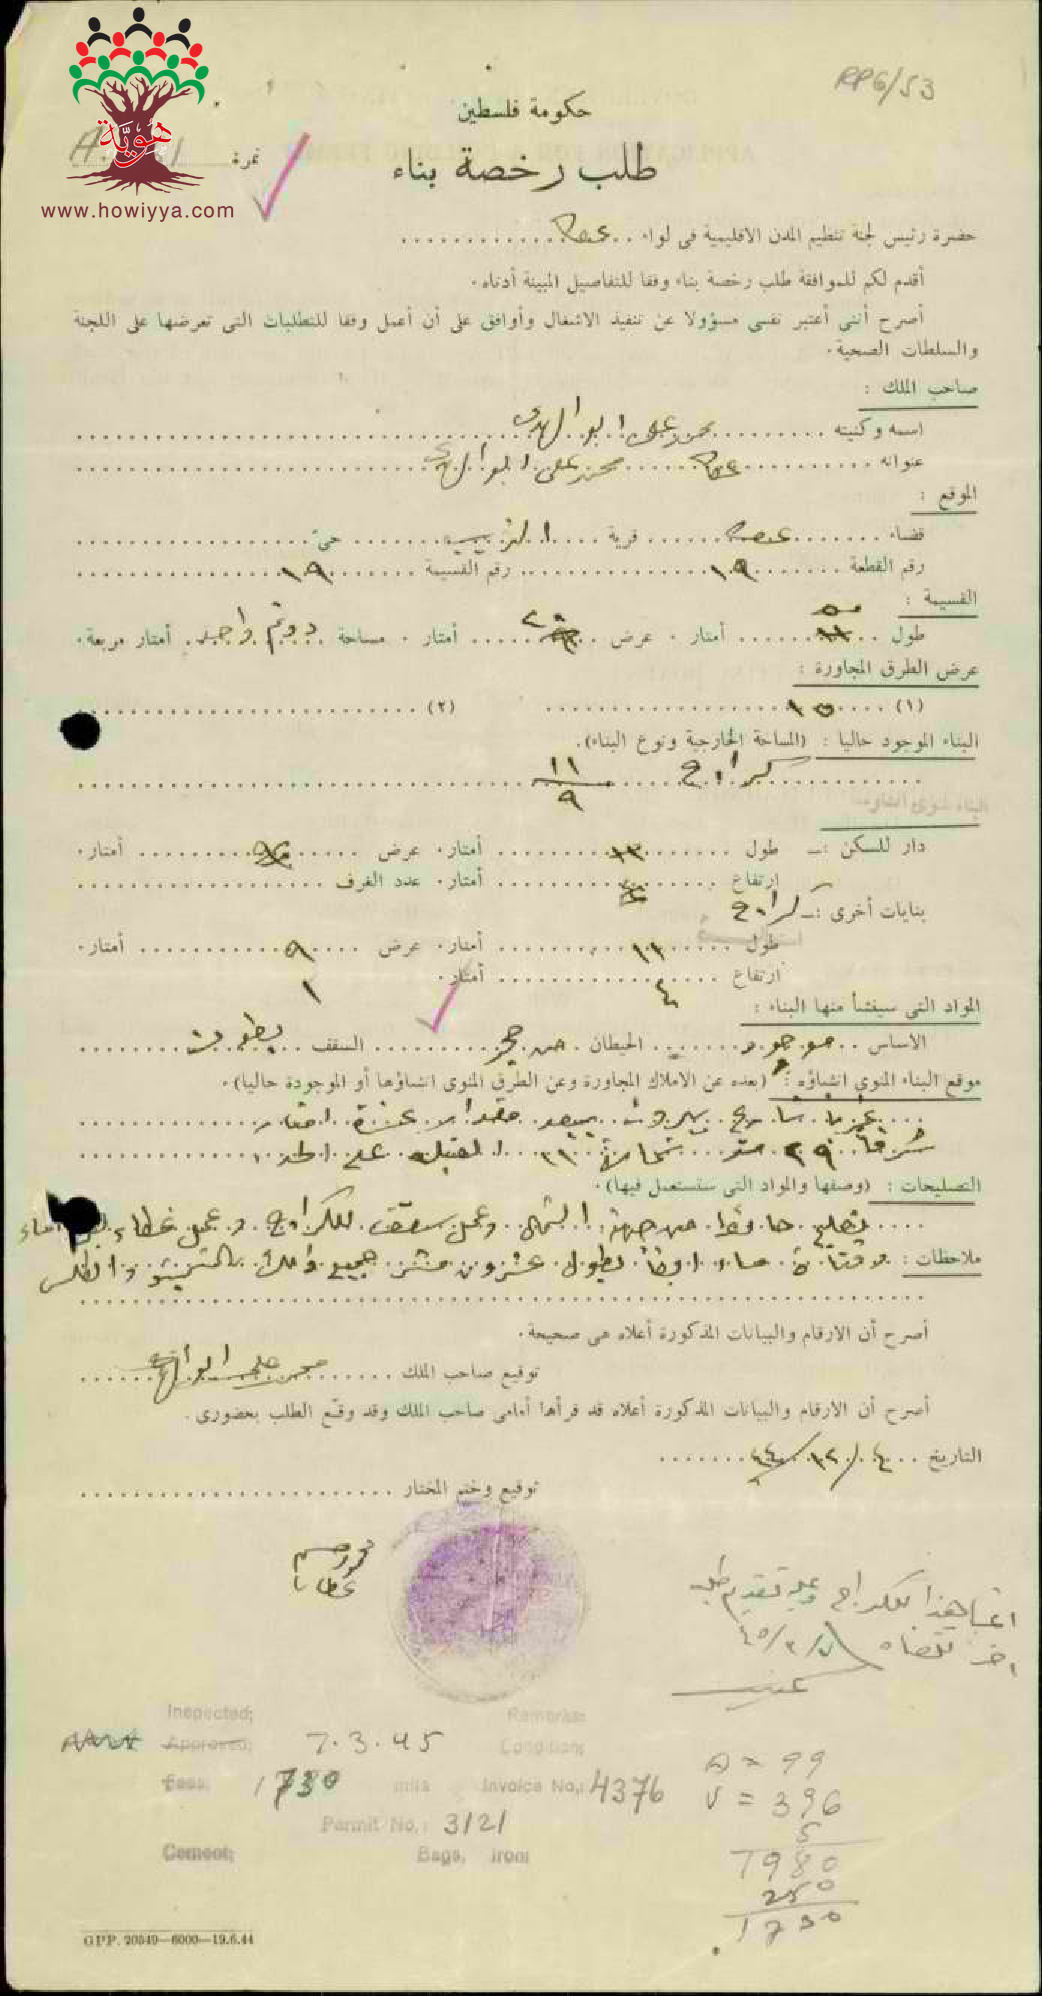 هوية
www.howiyya.com
RP6/53
حكومة فلسطين
نمرة:
طلب رخصة بناء
حضرة رئيس لجنة تنظيم المدن الاقليمية في لواء عكا
أقدم لكم للموافقة طلب رخصة بناء وفقا للتفاصيل المبينة أدناه.
أصرح أنني أعتبر نفسي مسؤولا عن تنفيذ الاشغال وأوافق على أن أعمل وفقا للمتطلبات التي تعرضها على اللجنة
والسلطات الصحية.
صاحب الملك :
اسمه وكنيته محمد علي ابو الهدى
عنوانه عكا محمد علي ابو الهدى
الموقع :
قضاء عكا قرية الزيب حي
رقم القطعة ١٩ رقم القسيمة ١٩
القسيمة :
طول ٥٠ أمتار . عرض أمتار . مساحة دونم واحد أمتار مربعة.
عرض الطرق المجاورة :
(١) ١٥ (٢)
البناء الموجود حاليا : (المساحة الخارجية ونوع البناء).
كراج ١١ / ٩
البناء المنوي انشاؤه
دار للسكن :ـ طول ١٣ أمتار. عرض أمتار.
ارتفاع أمتار. عدد الغرف
بنايات أخرى :ـ كراج
طول ١١ أمتار. عرض ٩ أمتار.
ارتفاع ٤ أمتار.
المواد التي سينشأ منها البناء :
الاساس موجود الحيطان من حجر السقف بطون
موقع البناء المنوي انشاؤه : (بعده عن الاملاك المجاورة وعن الطرق المنوي انشاؤها أو الموجودة حاليا).
غربا شارع بيروت يبعد مقدار عشرة امتار
شرقا ٢٩ متر شمالا ٢١
التصليحات : (وصفها والمواد التي ستستعمل فيها).
تصليح حائط من جهة الشمال وعمل سقف للكراج و عمل غطاء
ملاحظات : وقناة ماء ايضا بطول عشرون متر جميع ذلك بالشمينتو
أصرح أن الارقام والبيانات المذكورة أعلاه هي صحيحة.
توقيع صاحب الملك محمد علي ابو الهدى
أصرح أن الارقام والبيانات المذكورة أعلاه قد قرأها أمامي صاحب الملك وقد وقع الطلب بحضوري.
التاريخ ٤/١٢/٤٤
توقيع وختم المختار
محمود
عطايا
هذا الكراج تقديم طلب
٧/٣/٤٥
Inspected; Remarks:
Approved; 7.3.45 Condition;
Fees: 1730 mils Invoice No.: 4376
Permit No.: 3121
Cement; Bags, Iron;
A = 99
V = 396
5
1980
250
1730
GPP. 20549—6000—19.6.44